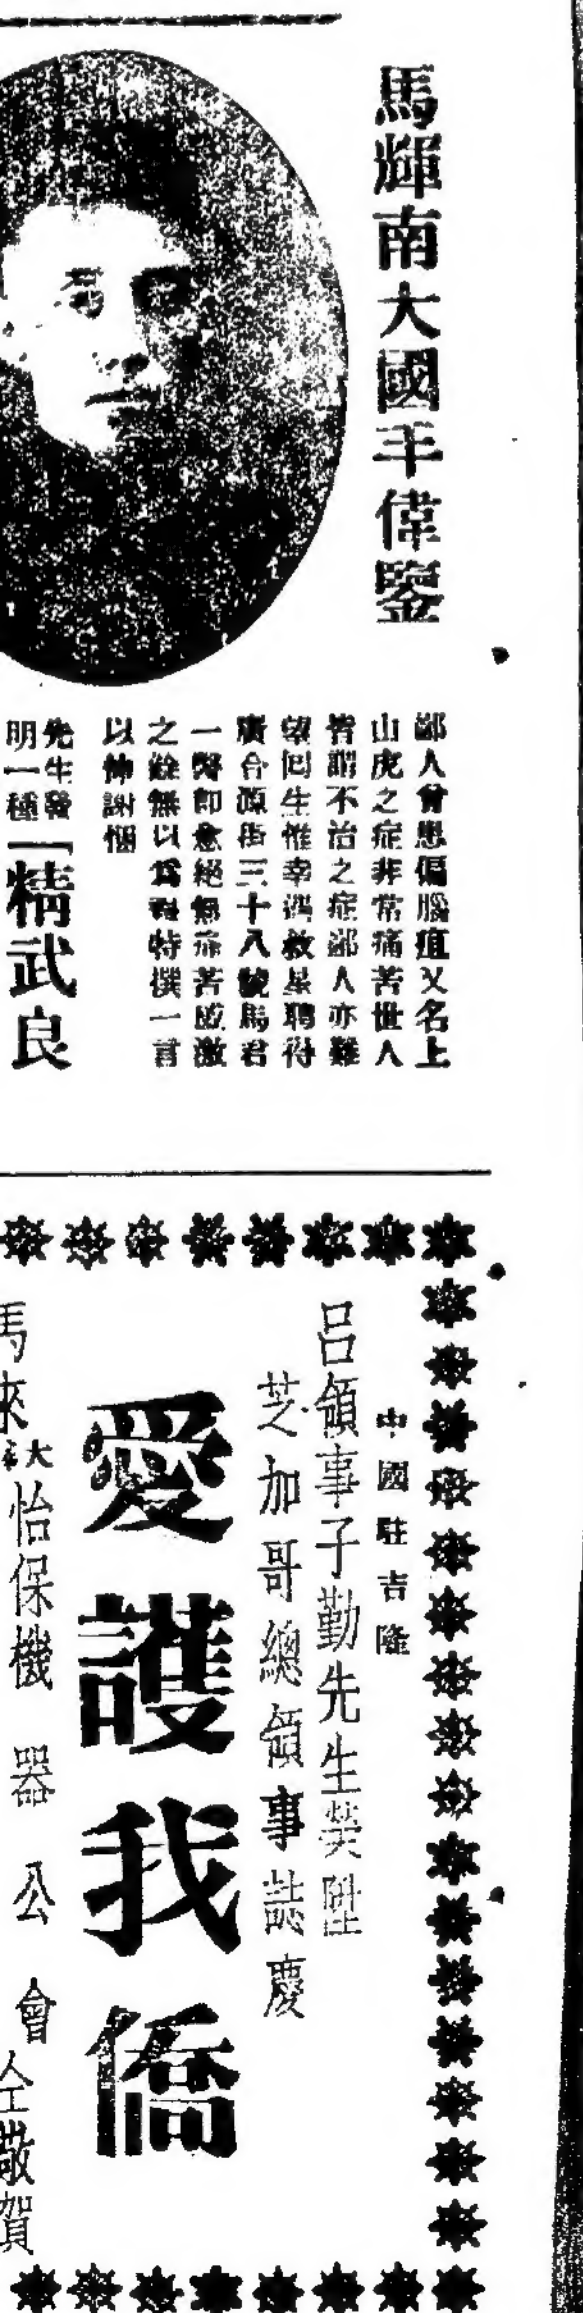 馬輝南大國手偉鑒
鄙人曾患偏腦疽又名上
山虎之症非常痛苦世人
皆謂不治之症鄙人亦難
望回生惟幸遇救星聘得
廣合源街三十八號馬君
一醫即愈絕無痛苦感激
之餘無以為報特撰一言
以伸謝悃
先生發
明一種
「精武良
中國駐吉隆
呂領事子勤先生榮陞
芝加哥總領事誌慶
愛護我僑
馬來
怡保機器公會仝敬賀